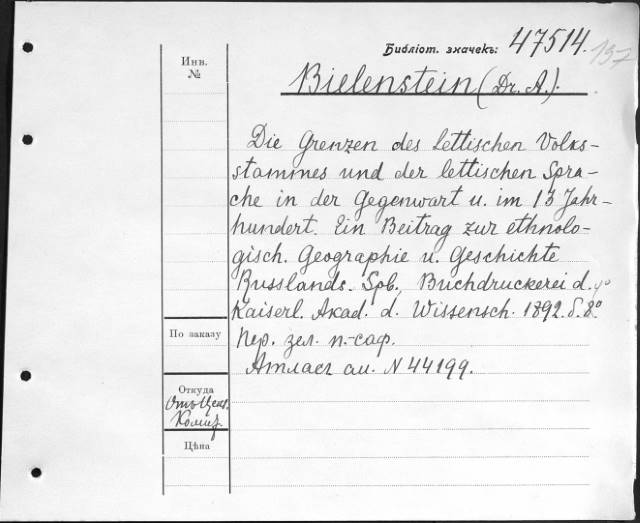 Библіот. значекъ: 47514. 137
Инв.
№
Bielenstein (Dr. A.).
Die Grenzen des lettischen Volks-
stammes und der lettischen Spra-
che in der Gegenwart u. im 13 Jahr-
hundert. Ein Beitrag zur ethnolo-
gisch. Geographie u. Geschichte
Russlands. Spb., Buchdruckerei d.
Kaiserl. Akad. d. Wissensch. 1892. 8°
По заказу
Пер. зел. п.-саф.
Атлас ал. N 44199.
Откуда
Отъ Ценз.
Комит.
Цѣна